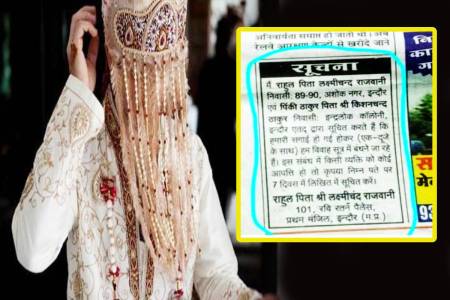 अनिवार्यता समाप्त हो जाती थी। अब
रेलवे आरक्षण केन्द्रों से खरीदे जान
सूचना
मैं राहुल पिता लक्ष्मीचन्द राजवानी
निवासी: 89-90, अशोक नगर, इन्दौर
एवं पिंकी ठाकुर पिता श्री किशनचन्द
ठाकुर निवासी: इन्द्रलोक कॉलोनी,
इन्दौर एतद् द्वारा सूचित करते हैं कि
हमारी सगाई हो गई होकर (एक-दूजे
के साथ) हम विवाह सूत्र में बंधने जा रहे
हैं। इस संबंध में किसी व्यक्ति को कोई
आपत्ति हो तो कृपया निम्न पते पर
7 दिवस में लिखित में सूचित करें।
राहुल पिता श्री लक्ष्मीचंद राजवानी
101, रवि रतन पैलेस,
प्रथम मंजिल, इन्दौर (म.प्र.)